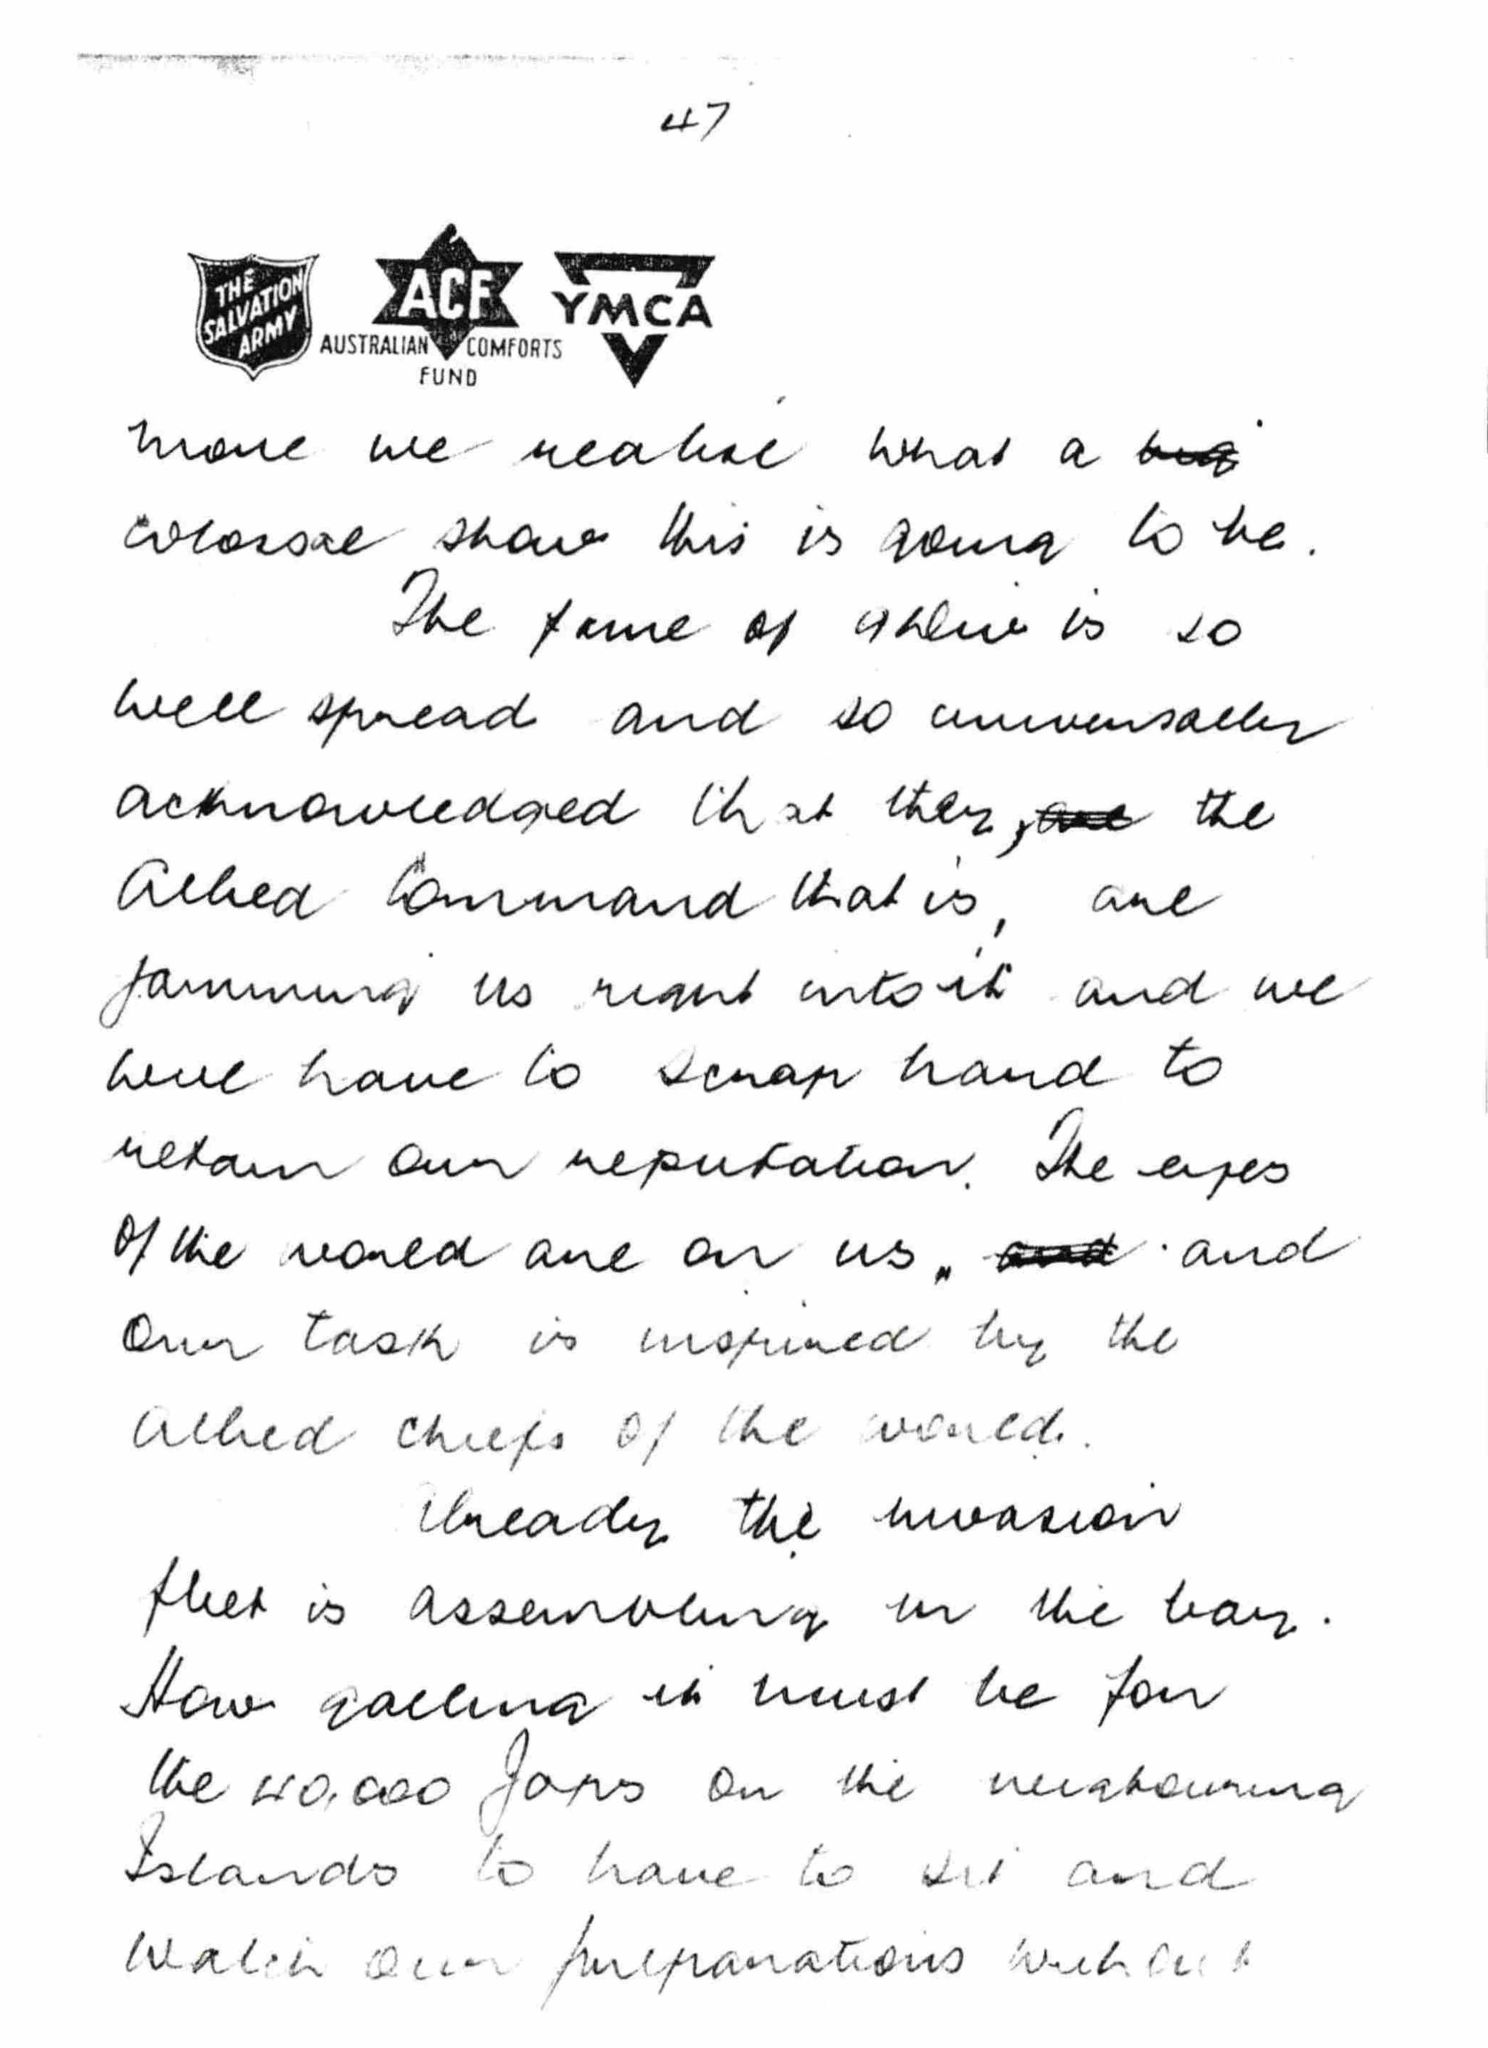 47
THE
SALVATION
ARMY
ACF
AUSTRALIAN COMFORTS
FUND
YMCA
more we realise what a big
colossal show this is going to be.
The fame of 9 Div is so
well spread and so universally
acknowledged that they, are the
Allied Command that is, are
jamming us right into it and we
will have to scrap hard to
retain our reputation. The eyes
of the world are on us, and and
our task is inspired by the
Allied chiefs of the world.
Already the invasion
fleet is assembling in the bay.
How galling it must be for
the 40,000 Japs on the neighbouring
Islands to have to sit and
watch our preparations without